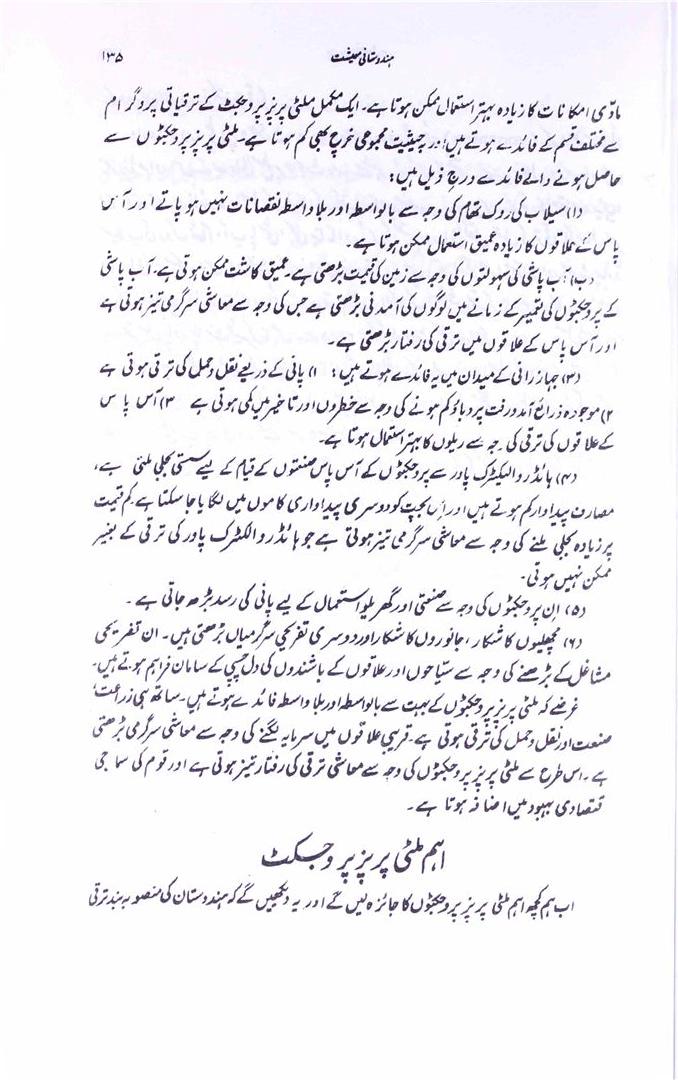 ہندوستانی معیشت ۱۳۵
مادّی امکانات کا زیادہ بہتر استعمال ممکن ہوتا ہے۔ ایک مکمل ملٹی پرپز پروجکٹ کے ترقیاتی پروگرام
سے مختلف قسم کے فائدے ہوتے ہیں اور بحیثیت مجموعی خرچ بھی کم ہوتا ہے۔ ملٹی پرپز پروجکٹوں سے
حاصل ہونے والے فائدے درج ذیل ہیں:
(۱) سیلاب کی روک تھام کی وجہ سے بالواسطہ اور بلا واسطہ نقصانات نہیں ہو پاتے اور آس
پاس کے علاقوں کا زیادہ عمیق استعمال ممکن ہوتا ہے۔
(ب) آب پاشی کی سہولتوں کی وجہ سے زمین کی قیمت بڑھتی ہے۔ عمیق کاشت ممکن ہوتی ہے۔ آب پاشی
کے پروجکٹوں کی تعمیر کے زمانے میں لوگوں کی آمدنی بڑھتی ہے جس کی وجہ سے معاشی سرگرمی تیز ہوتی ہے
اور آس پاس کے علاقوں میں ترقی کی رفتار بڑھتی ہے۔
(۳) جہاز رانی کے میدان میں یہ فائدے ہوتے ہیں: ۱) پانی کے ذریعے نقل و حمل کی ترقی ہوتی ہے
۲) موجودہ ذرائع آمد و رفت پر دباؤ کم ہونے کی وجہ سے خطروں اور تاخیر میں کمی ہوتی ہے ۳) آس پاس
کے علاقوں کی ترقی کی وجہ سے ریلوں کا بہتر استعمال ہوتا ہے۔
(۴) ہائڈرو الیکٹرک پاور سے پروجکٹوں کے آس پاس صنعتوں کے قیام کے لیے سستی بجلی ملتی ہے،
مصارف پیداوار کم ہوتے ہیں اور اس بچت کو دوسری پیداواری کاموں میں لگایا جا سکتا ہے۔ کم قیمت
پر زیادہ بجلی ملنے کی وجہ سے معاشی سرگرمی تیز ہوتی ہے جو ہائڈرو الکٹرک پاور کی ترقی کے بغیر
ممکن نہیں ہوتی۔
(۵) ان پروجکٹوں کی وجہ سے صنعتی اور گھریلو استعمال کے لیے پانی کی رسد بڑھ جاتی ہے۔
(۶) مچھلیوں کا شکار، جانوروں کا شکار اور دوسری تفریحی سرگرمیاں بڑھتی ہیں۔ ان تفریحی
مشاغل کے بڑھنے کی وجہ سے سیّاحوں اور علاقوں کے باشندوں کی دل چسپی کے سامان فراہم ہوتے ہیں۔
غرضے کہ ملٹی پرپز پروجکٹوں کے بہت سے بالواسطہ اور بلا واسطہ فائدے ہوتے ہیں۔ ساتھ ہی زراعت،
صنعت اور نقل و حمل کی ترقی ہوتی ہے۔ قریبی علاقوں میں سرمایہ لگنے کی وجہ سے معاشی سرگرمی بڑھتی
ہے۔ اس طرح سے ملٹی پرپز پروجکٹوں کی وجہ سے معاشی ترقی کی رفتار تیز ہوتی ہے اور قوم کی سماجی
قتصادی بہبود میں اضافہ ہوتا ہے۔
اہم ملٹی پرپز پروجکٹ
اب ہم کچھ اہم ملٹی پرپز پروجکٹوں کا جائزہ لیں گے اور یہ دیکھیں گے کہ ہندوستان کی منصوبہ بند ترقی